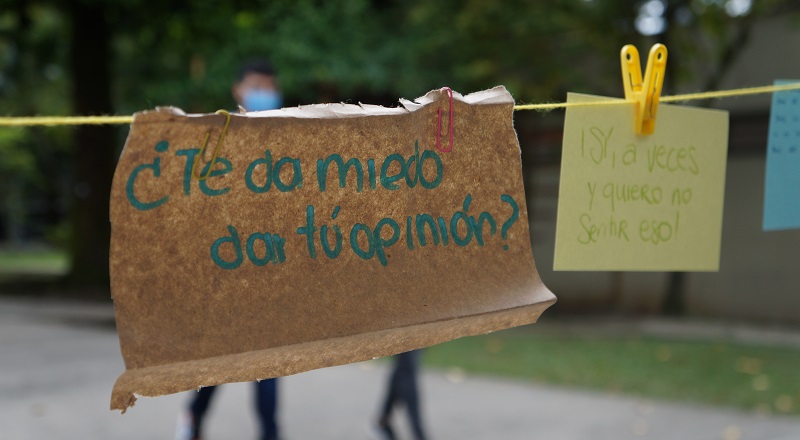 ¿Te da miedo
dar tú opinión?
¡SÍ, a veces
y quiero no
Sentir eso!